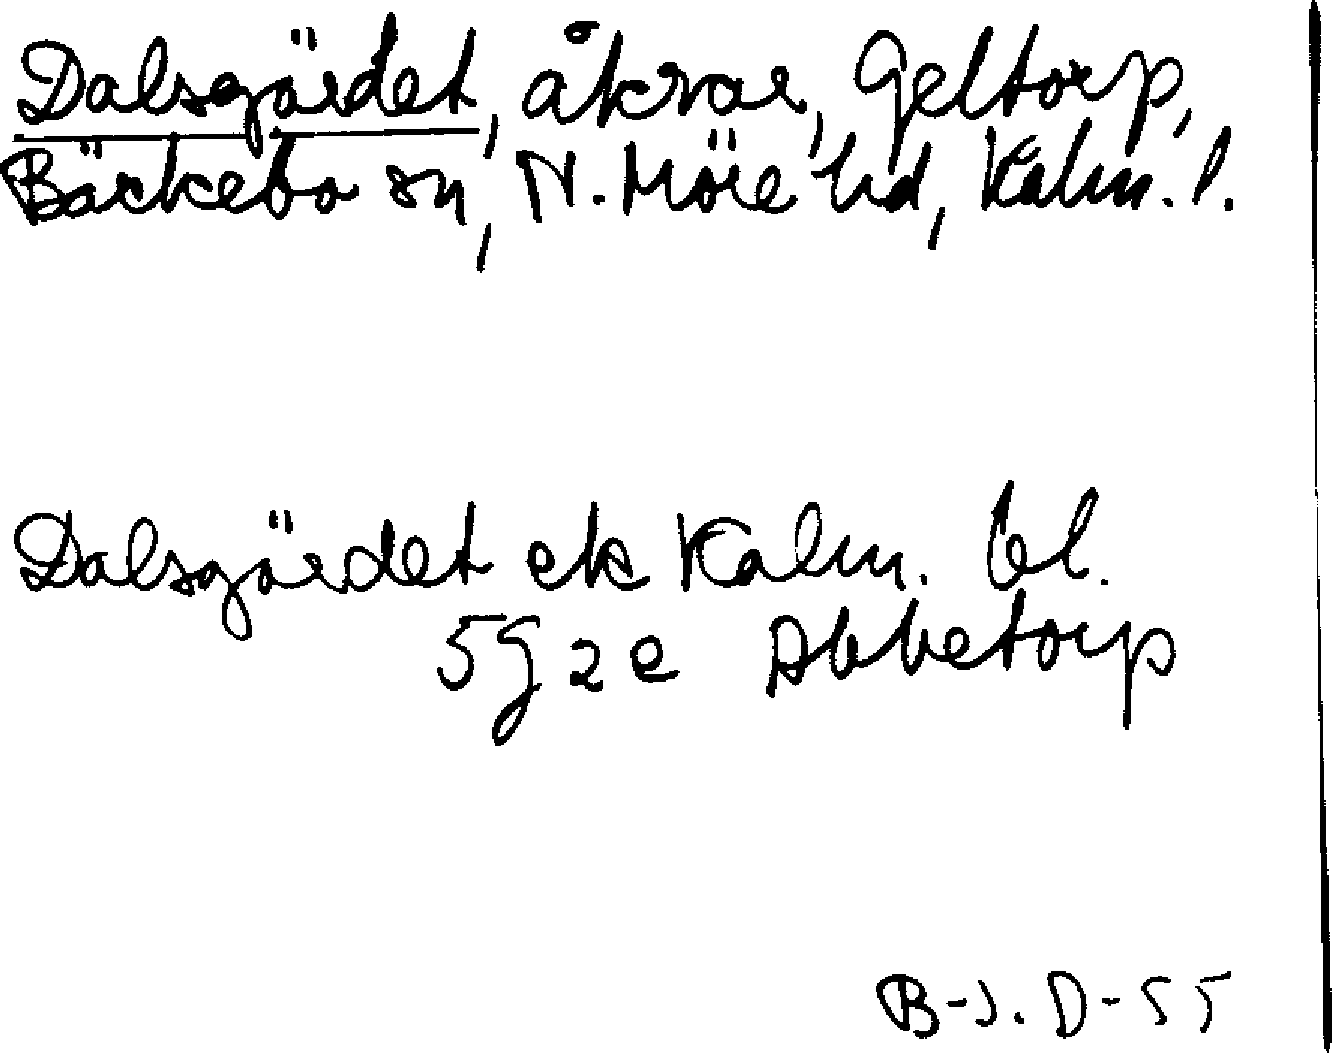 Dalsgärdet, åkrar, Geltorp,
Bäckebo sn, N. Möre hd, Kalm. l.
Dalsgärdet ek Kalm. bl.
5G 2e Abbetorp
B-J. D-55